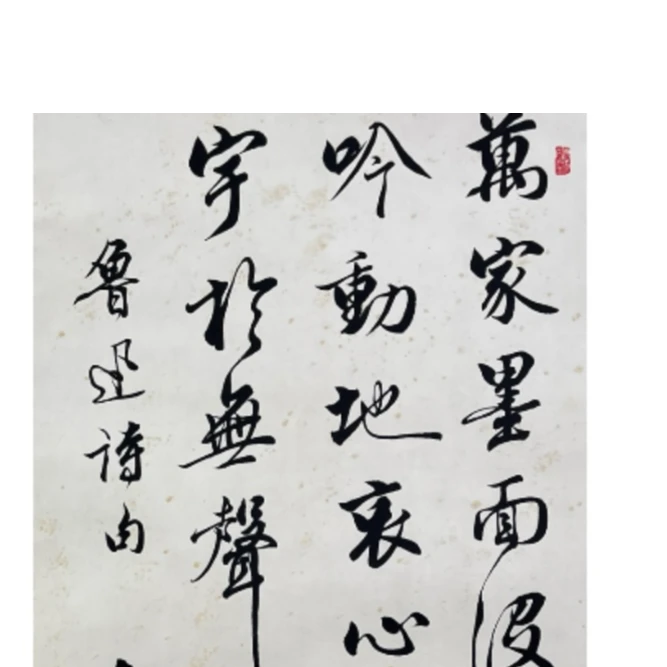 萬家墨面沒
吟動地哀心
宇於無聲
魯迅詩句